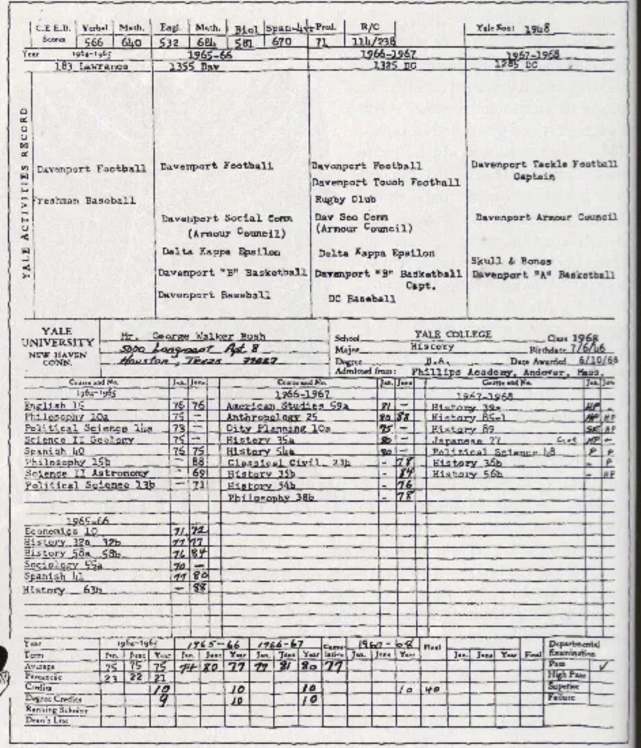 C.E.E.B. Verbal Math. Engl. Math. Biol Span. Prod. R/C Yale 1968
Scores 566 640 532 684 581 670 71 114/238
Year 1964-1965 1965-66 1966-1967 1967-1968
183 Lawrance 1355 Dav 1385 DC 1285 DC
YALE ACTIVITIES RECORD
Davenport Football Davenport Football Davenport Football Davenport Tackle Football
Captain
Davenport Touch Football
Freshman Baseball Rugby Club
Davenport Social Comm Dav Soc Comm Davenport Armour Council
(Armour Council) (Armour Council)
Delta Kappa Epsilon Delta Kappa Epsilon Skull & Bones
Davenport "B" Basketball Davenport "B" Basketball Davenport "A" Basketball
Capt.
Davenport Baseball DC Baseball
YALE UNIVERSITY
NEW HAVEN CONN.
Mr. George Walker Bush
5000 Longmont Apt. 8
Houston, Texas 77027
School YALE COLLEGE Class 1968
Major History Birthdate 7/6/46
Degree B.A. Date Awarded 6/10/68
Admitted from: Phillips Academy, Andover, Mass.
Course and No. Jan. June Course and No. Jan. June Course and No. Jan. Jun
1964-1965 1966-1967 1967-1968
English 15 76 76 American Studies 59a 71 - History 39a HP -
Philosophy 10a 75 - Anthropology 25 80 88 History 85-1 HP HP
Political Science 14a 73 - City Planning 10a 75 - History 89
Science II Geology 75 - History 35a 80 - Japanese 77 HP -
Spanish 40 76 75 History 54a 80 - Political Science 48 P P
Philosophy 15b - 88 Classical Civil. 23b - 78 History 36b - P
Science II Astronomy - 69 History 35b - 84 History 56b - HP
Political Science 13b - 71 History 54b - 76
Philosophy 38b - 78
1965-66
Economics 10 71 72
History 32a 32b 77 77
History 58a 58b 76 84
Sociology 55a 70 -
Spanish 41 77 80
History 63b - 88
Year 1964-1965 1965-66 1966-67 1967-68 Final Departmental Examination
Term Jan. June Year Jan. June Year Jan. June Year Jan. June Year Jan. June Year Final
Average 75 75 75 74 80 77 79 81 80 77 Pass ✓
Percentile 23 22 21 High Pass
Credits 10 10 10 10 40 Superior
Degree Credits 9 10 10 Failure
Ranking Scholar
Dean's List